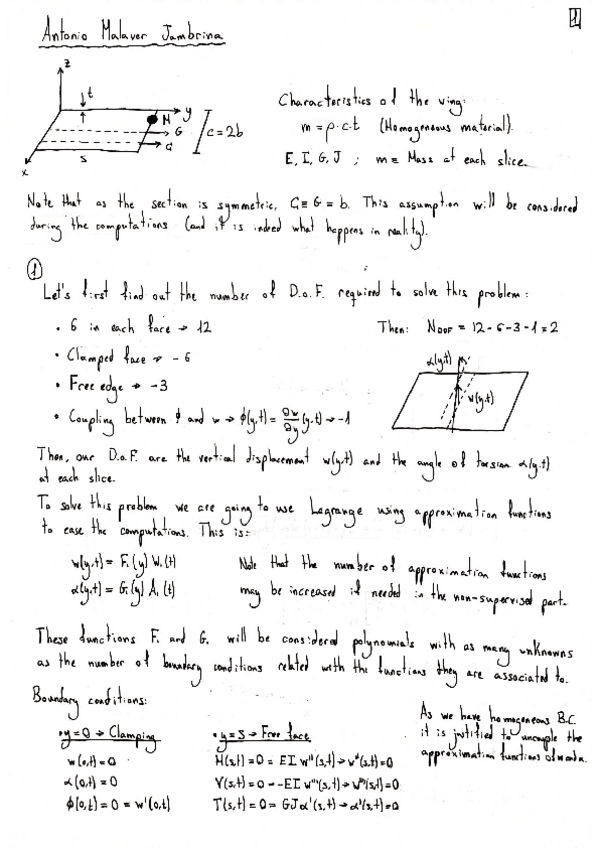 1
Antonio Malaver Jambrina
z
t
M
y
G
c = 2b
G
s
x
Characteristics of the wing:
m = ρ·c·t (Homogeneous material).
E, I, G, J ; m ≡ Mass at each slice.
Note that as the section is symmetric, C ≡ G = b. This assumption will be considered
during the computations (and it is indeed what happens in reality).
1
Let's first find out the number of D.o.F. required to solve this problem:
· 6 in each face → 12
Then: NDOF = 12-6-3-1 = 2
· Clamped face → -6
· Free edge → -3
· Coupling between ϕ and w → ϕ(y,t) = ∂w/∂y (y,t) → -1
α(y,t)
w(y,t)
Then, our D.o.F. are the vertical displacement w(y,t) and the angle of torsion α(y,t)
at each slice.
To solve this problem we are going to use Lagrange using approximation functions
to ease the computations. This is:
w(y,t) = F₁(y) W₁(t)
α(y,t) = G₁(y) A₁(t)
Note that the number of approximation functions
may be increased if needed in the non-supervised part.
These functions F₁ and G₁ will be considered polynomials with as many unknowns
as the number of boundary conditions related with the functions they are associated to.
Boundary conditions:
· y=0 → Clamping
w(0,t)=0
α(0,t)=0
ϕ(0,t)=0=w'(0,t)
· y=S → Free face
M(s,t)=0=EI w''(s,t) → w''(s,t)=0
V(s,t)=0=-EI w'''(s,t) → w'''(s,t)=0
T(s,t)=0=GJα'(s,t) → α'(s,t)=0
As we have homogeneous B.C.
it is justified to uncouple the
approximation functions of w and α.